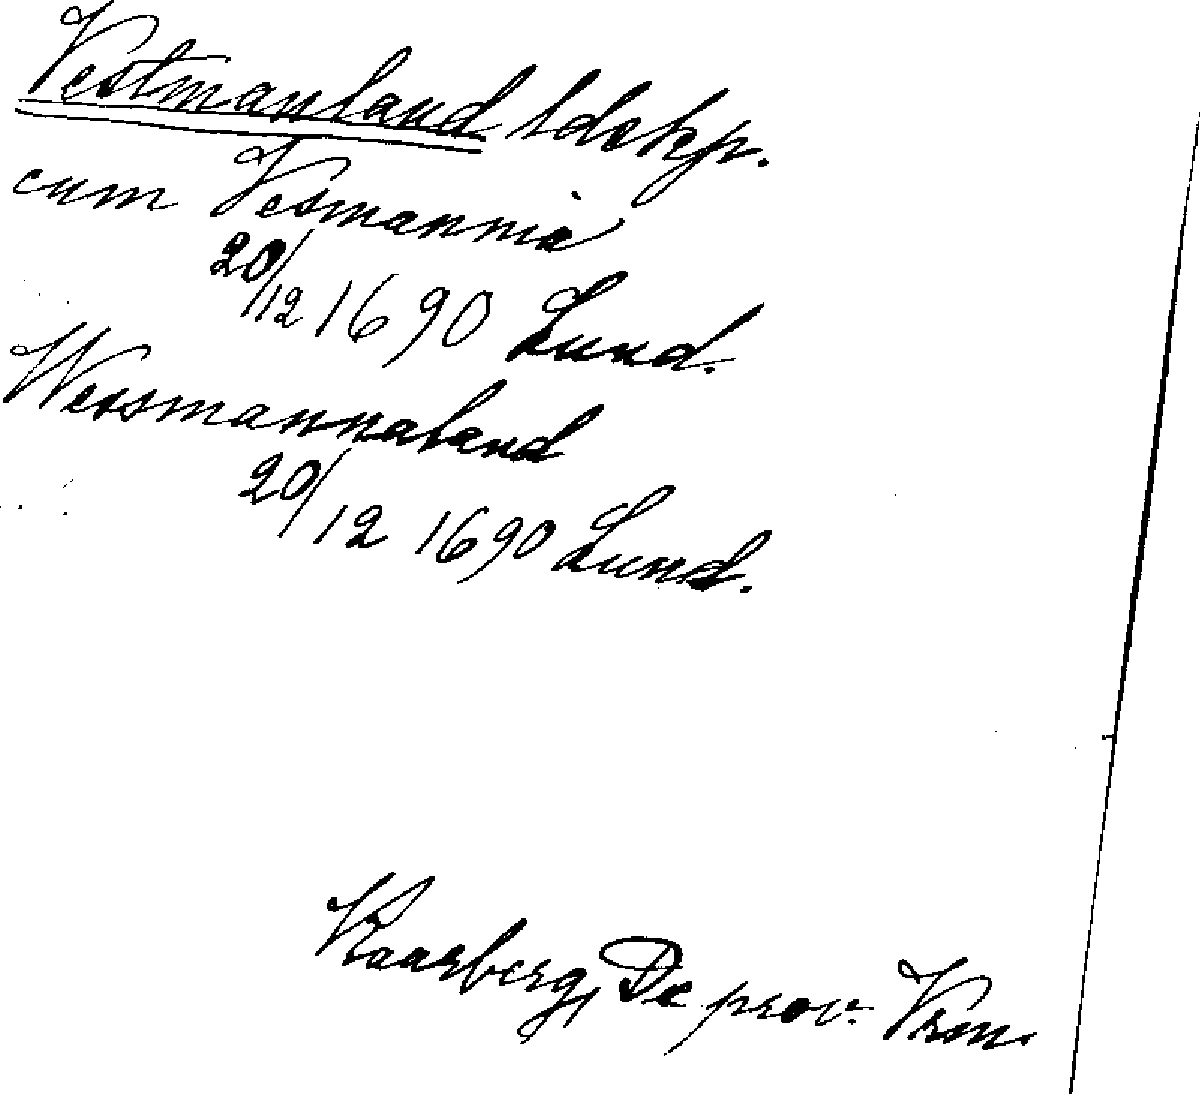 Vestmanland ldskp.
cum Vesmannia
20/12 1690 Lund.
Wessmannaland
20/12 1690 Lund.
Kaarberg, De prov. Vrm.